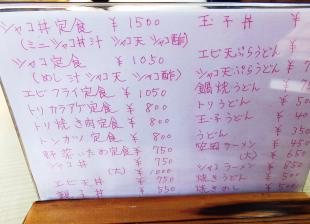 シャコ丼定食 ¥1500
(ミニシャコ丼 汁 シャコ天 シャコ酢)
シャコ定食 ¥1050
(めし 汁 シャコ天 シャコ酢)
エビフライ定食 ¥1050
トリカラアゲ定食 ¥800
トリ焼き肉定食 ¥800
トンカツ定食 ¥800
野菜いため定食 ¥750
シャコ丼 ¥750
(大) ¥1000
エビ天丼 ¥750
親子丼 ¥550
玉子丼 ¥
エビ天ぷらうどん ¥
シャコ天ぷらうどん ¥7
鍋焼うどん ¥7
トリうどん ¥5
玉子うどん ¥40
うどん ¥350
ラーメン ¥450
(大) ¥650
シャコラーメン ¥85
焼きうどん ¥550
焼きめし ¥500